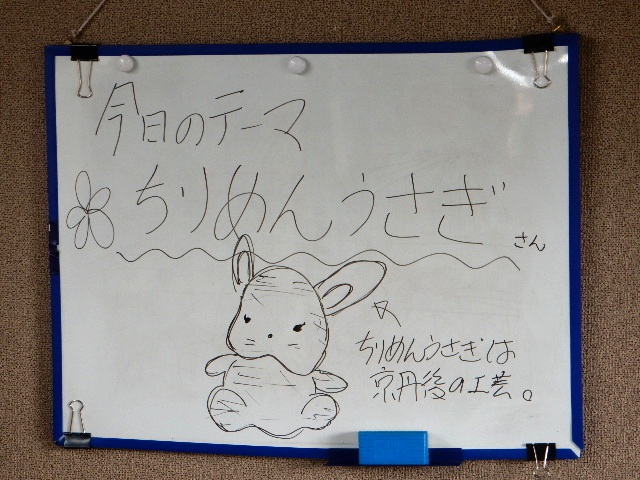 今日のテーマ
ちりめんうさぎ
さん
ちりめんうさぎは
京丹後の工芸。